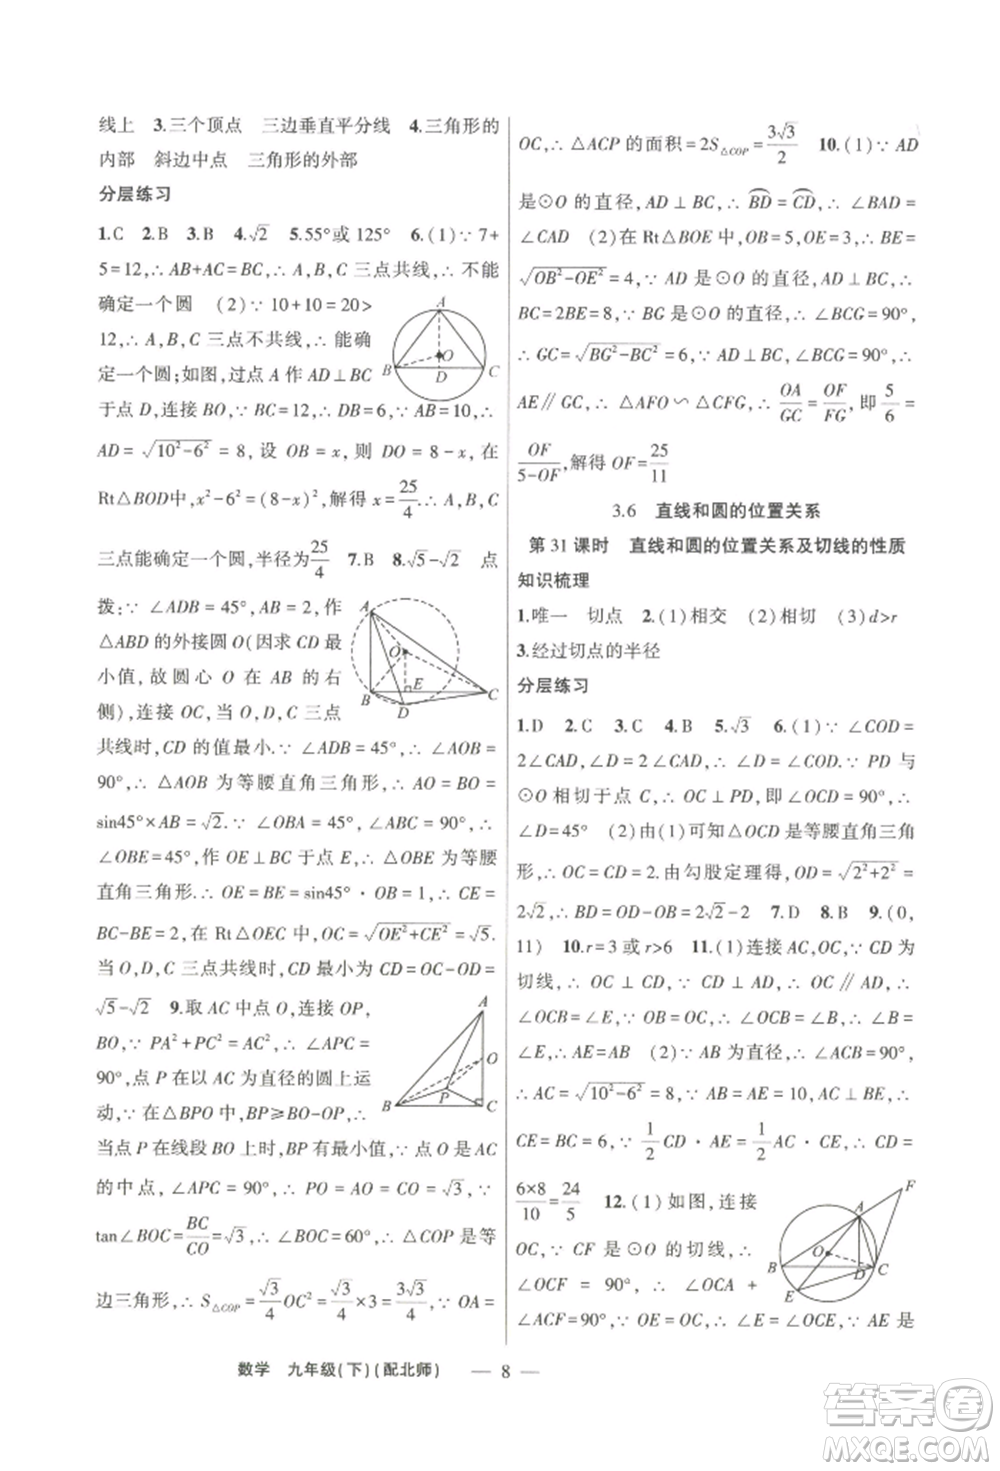 线上 3.三个顶点 三边垂直平分线 4.三角形的
内部 斜边中点 三角形的外部
分层练习
1.C 2.B 3.B 4.√2 5.55°或 125° 6.(1)∵7+
5=12,∴AB+AC=BC,∴A,B,C 三点共线,∴不能
确定一个圆 (2)∵10+10=20>
12,∴A,B,C 三点不共线,∴能确
定一个圆;如图,过点 A 作 AD⊥BC
于点 D,连接 BO,∵BC=12,∴DB=6,∵AB=10,∴
AD=√(10²-6²)=8,设 OB=x,则 OD=8-x,在
Rt△BOD中,x²-6²=(8-x)²,解得 x=25/4.∴A,B,C
三点能确定一个圆,半径为25/4 7.B 8.√5-√2 点
拨:∵∠ADB=45°,AB=2,作
△ABD的外接圆 O(因求 CD 最
小值,故圆心 O 在 AB 的右
侧),连接 OC,当 O,D,C 三点
共线时,CD 的值最小.∵∠ADB=45°,∴∠AOB=
90°,∴△AOB 为等腰直角三角形,∴AO=BO=
sin45°×AB=√2.∵∠OBA=45°,∠ABC=90°,∴
∠OBE=45°,作 OE⊥BC 于点 E,∴△OBE 为等腰
直角三角形.∴OE=BE=sin45°·OB=1,∴CE=
BC-BE=2,在 Rt△OEC 中,OC=√(OE²+CE²)=√5.
当 O,D,C 三点共线时,CD 最小为 CD=OC-OD=
√5-√2 9.取 AC 中点 O,连接 OP,
BO,∵PA²+PC²=AC²,∴∠APC=
90°,点 P 在以 AC 为直径的圆上运
动,∵在△BPO 中,BP≥BO-OP,∴
当点 P 在线段 BO 上时,BP 有最小值,∵点 O 是 AC
的中点,∠APC=90°,∴PO=AO=CO=√3,∵
tan∠BOC=BC/CO=√3,∴∠BOC=60°,∴△COP 是等
边三角形,∴S△COP=√3/4 OC²=√3/4×3=3√3/4,∵OA=
OC,∴△ACP 的面积=2S△COP=3√3/2 10.(1)∵AD
是⊙O 的直径,AD⊥BC,∴BD=CD,∴∠BAD=
∠CAD (2)在 Rt△BOE 中,OB=5,OE=3,∴BE=
√(OB²-OE²)=4,∵AD 是⊙O 的直径,AD⊥BC,∴
BC=2BE=8,∵BG 是⊙O 的直径,∴∠BCG=90°,
∴GC=√(BG²-BC²)=6,∵AD⊥BC,∠BCG=90°,∴
AE∥GC,∴△AFO∽△CFG,∴OA/GC=OF/FG,即5/6=
OF/(5-OF),解得 OF=25/11
3.6 直线和圆的位置关系
第 31 课时 直线和圆的位置关系及切线的性质
知识梳理
1.唯一 切点 2.(1)相交 (2)相切 (3)d>r
3.经过切点的半径
分层练习
1.D 2.C 3.C 4.B 5.√3 6.(1)∵∠COD=
2∠CAD,∠D=2∠CAD,∴∠D=∠COD.∵PD 与
⊙O 相切于点 C,∴OC⊥PD,即∠OCD=90°,∴
∠D=45° (2)由(1)可知△OCD 是等腰直角三角
形,∴OC=CD=2.由勾股定理得,OD=√(2²+2²)=
2√2,∴BD=OD-OB=2√2-2 7.D 8.B 9.(0,
11) 10.r=3 或 r>6 11.(1)连接 AC,OC,∵CD 为
切线,∴OC⊥CD,∵CD⊥AD,∴OC∥AD,∴
∠OCB=∠E,∵OB=OC,∴∠OCB=∠B,∴∠B=
∠E,∴AE=AB (2)∵AB 为直径,∴∠ACB=90°,
∴AC=√(10²-6²)=8,∵AB=AE=10,AC⊥BE,∴
CE=BC=6,∵1/2CD·AE=1/2AC·CE,∴CD=
6×8/10=24/5 12.(1)如图,连接
OC,∵CF 是⊙O 的切线,∴
∠OCF=90°,∴∠OCA+
∠ACF=90°,∵OE=OC,∴∠E=∠OCE,∵AE 是
A
B
O
C
D
A
O
B
E
C
D
A
O
P
B
C
F
A
O
B
D
C
E
数学 九年级(下)(配北师) — 8 —
答案卷
MXQE.COM